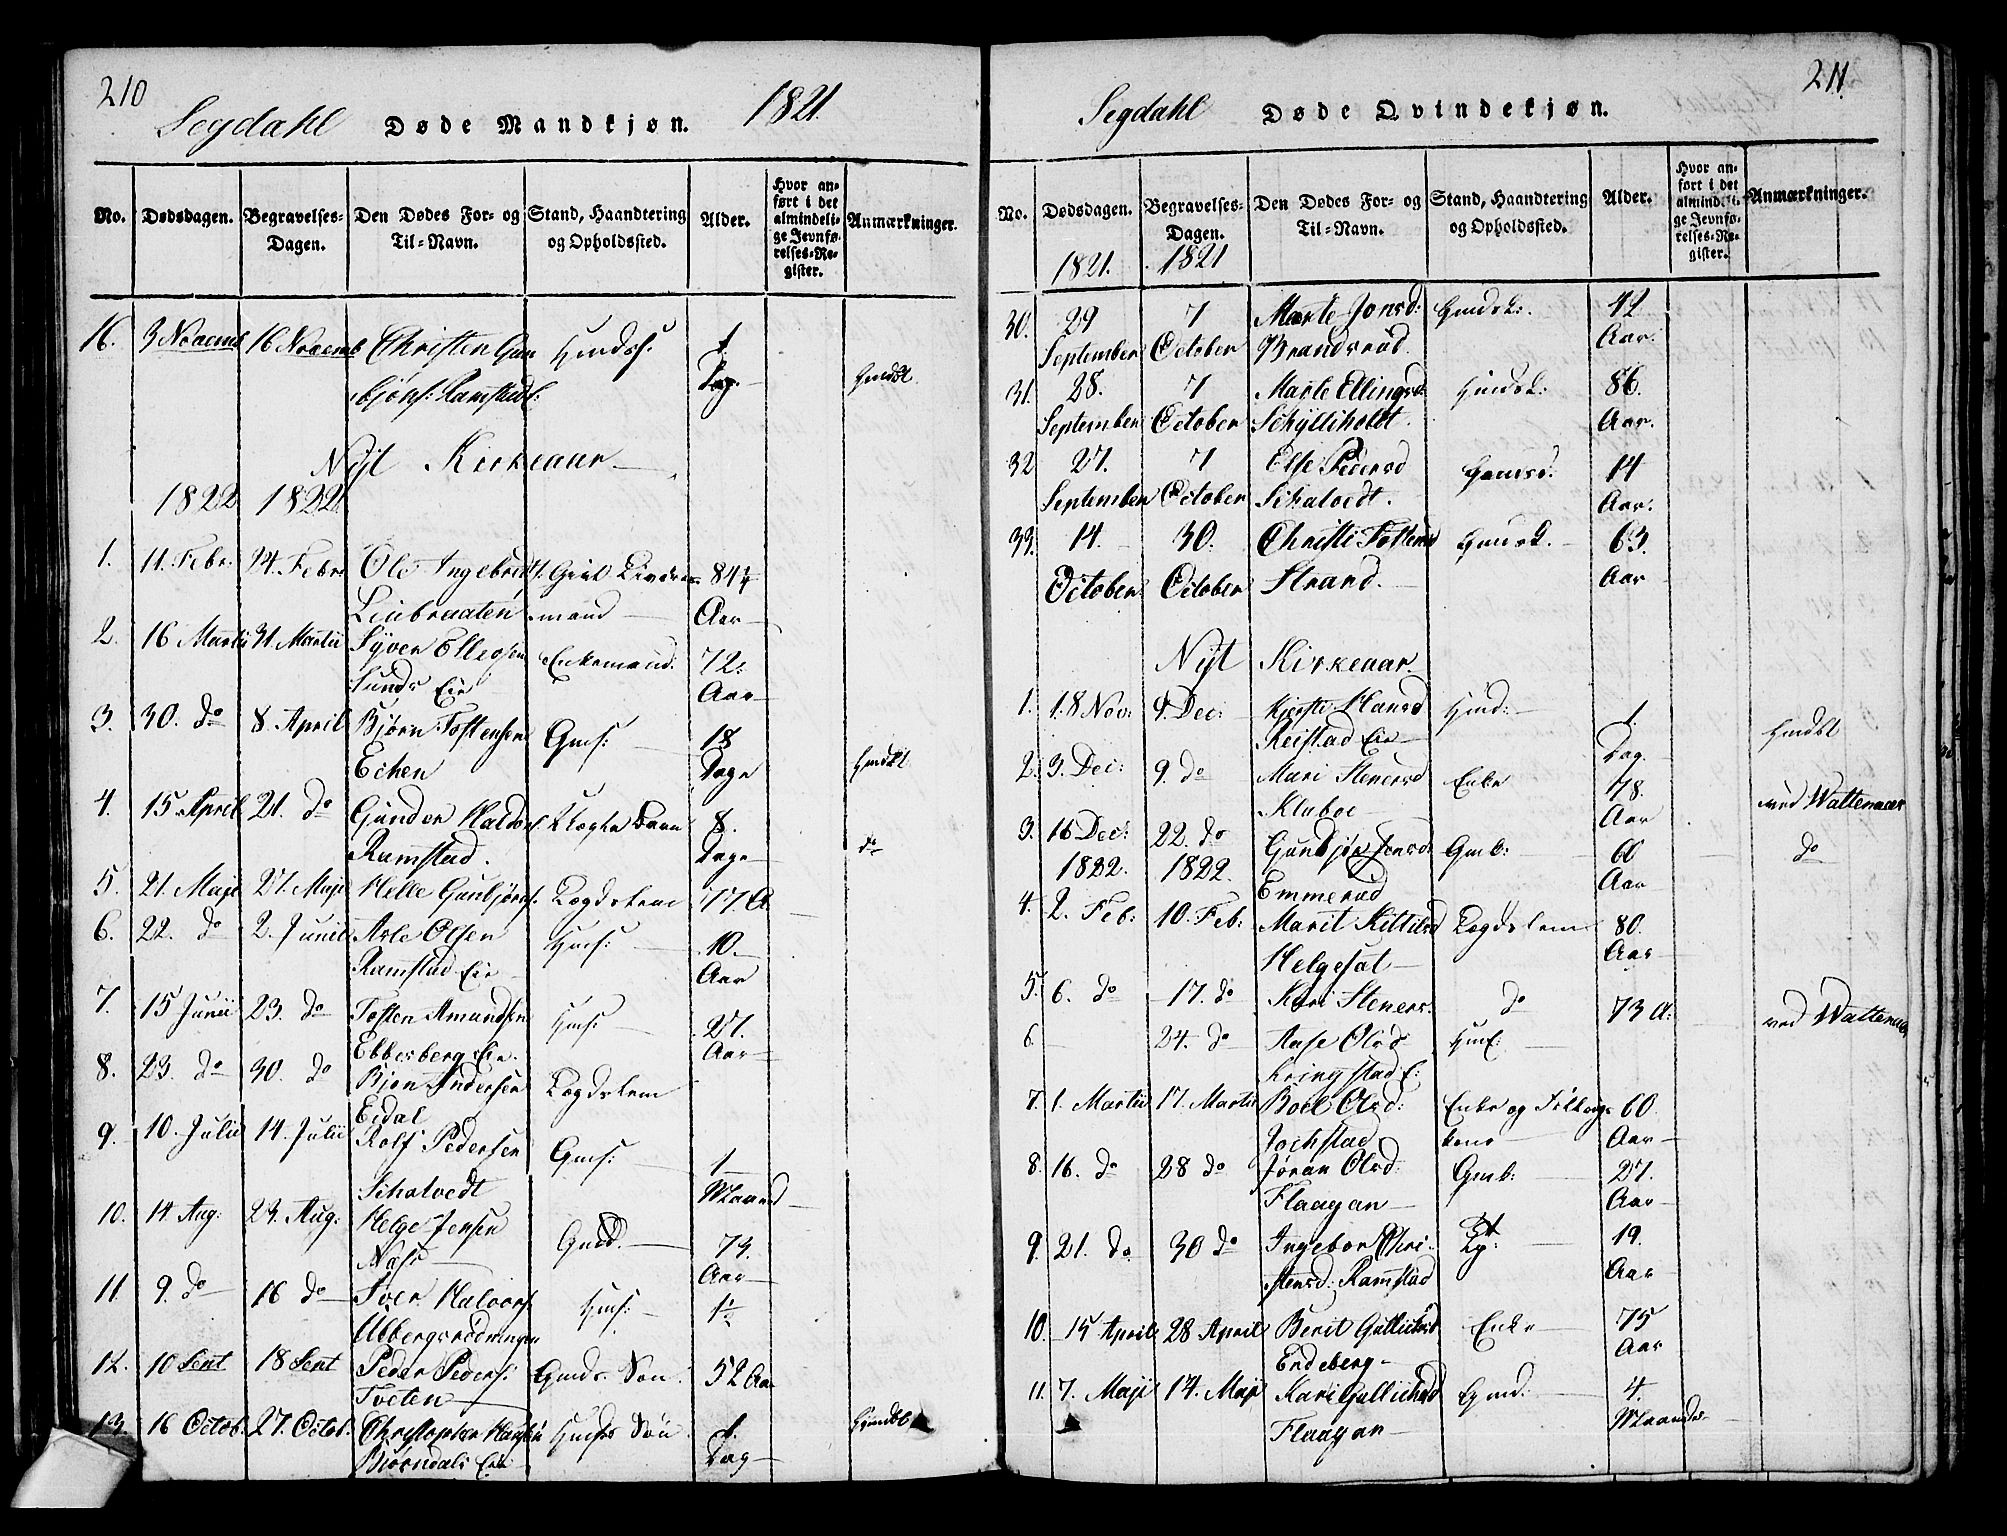 210
Segdahl Døde Mandkjøn. 1821.
No. Dødsdagen. Begravelses-Dagen. Den Dødes For- og Til-Navn. Stand, Haandtering og Opholdssted. Alder. Hvor anført i det almindelige Jevnførelses-Register. Anmærkninger.
16. 3 Novemb 16 Novemb Christen Gun Huuss: 1.
bjøns: Ramstad Dag. hmdbt.
Nyt Kirkeaar
1822 1822
1. 11. Febr: 24. Febr Ole Ingebredts: 84¼
Liubraaten mand Aar
2. 16 Martii 31 Martii Syver Ellevsen Enkemand. 72:
Lunds Eie Aar
3. 30. do 8. April Bjørn Tostensen Gms: 18
Echen Dage hmdbt
4. 15 April 21. do Gunder Haldors: 8.
Ramstad. Dage do
5. 21. Maji 27. Maji Helle Gunbjørns: Lægdslem 77. A
6. 22. do 2. Junii Asle Olsen Huus: 10.
Ramstad Eie Aar
7. 15 Junii 23. do Tosten Amundsen Hms: 27.
Ebbesberg Eie. Aar
8. 23. do 30. do Bjørn Andersen Lægdslem
Eidal
9. 10. Julii 14. Julii Rolf Pedersen Gms: 1
Schalvedt Maaned
10. 14 Aug: 23. Aug: Helge Jensen Gmd. 73.
Næss Aar
11. 9. do 16 do Iver Halvors: Hms: 1
Ubbergsrødningen
12. 10 Sept 18 Sept Peder Peders: Gmds Søn 52 Aar
Tveten
13. 16 Octob. 27. Octob: Christopher Hansen Huusm: Søn 1.
Bjørndals Eie Dag hjmdbt
211.
Segdahl Døde Qvindekjøn.
No. Dødsdagen. Begravelses-Dagen. Den Dødes For- og Til-Navn. Stand, Haandtering og Opholdssted. Alder. Hvor anført i det almindelige Jevnførelses-Register. Anmærkninger.
1821. 1821
30. 29 7 Marte Jonsd: Hmdsk: 42
September October Brandsrud. Aar:
31. 28. 7 Marte Ellingsd Hmdsk: 86.
September October Schylliholdt. Aar:
32 27. 7 Else Pedersd Gmdsd: 14
September October Schalvedt. Aar:
33. 14. 30. Christi Tostens Hmdsk. 63.
October October Strand. Aar
Nyt Kirkeaar.
1. 18 Nov: 4. Dec: Kjersti Hansd Hmd: 1.
Reistad Eie Dag. hmdbt
2. 3. Dec: 9. do Mari Stenersd Enke 78.
Kluboe Aar ved Wattenaas
3. 16 Dec: 22. do Gunbjør Jensd: Gmk: 60
1822. 1822. Emmerud Aar do
4. 2. Feb: 10. Feb: Marit Kittilsd Lægdslem 80.
Helgeset Aar
5. 6. do 17. do Kari Steners: do 73 A: ved Wattenaas
6. 24. do Aase Olsd Hmf:
Kringstad E:
7. 1. Martii 17. Martii Boel Olsd: Enke og 60.
Jochstad kone Aar
8. 16. do 28 do Jøran Olsd: Gmk: 27.
Flaagan Aar
9. 21. do 30 do Ingebor Chri: 19.
stensd: Ramstad Aar
10. 15 April 28 April Berit Gulliksd Enke 75
Endeberg Aar
11. 7. Maji 14. Maji Kari Gulliksd Gmd: 4.
Flaagan Maaneder